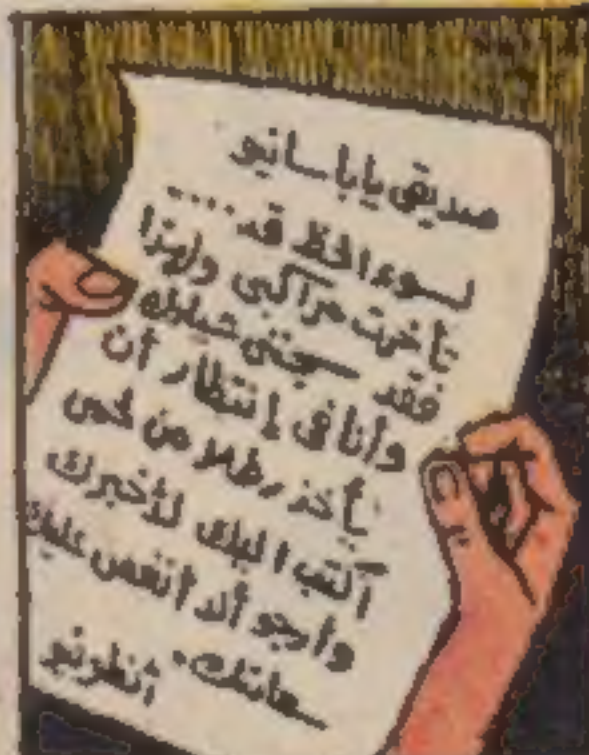 صديقي يا باسانيو
لسوء الحظ قد ....
تأخرت مراكبي ولهذا
فقد سجنني شيلوك
وأنا في إنتظار أن
يأخذ رطلا من لحمي
أكتب اليك لأخبرك
وأرجو ألا أنغص عليك
سعادتك. أنطونيو